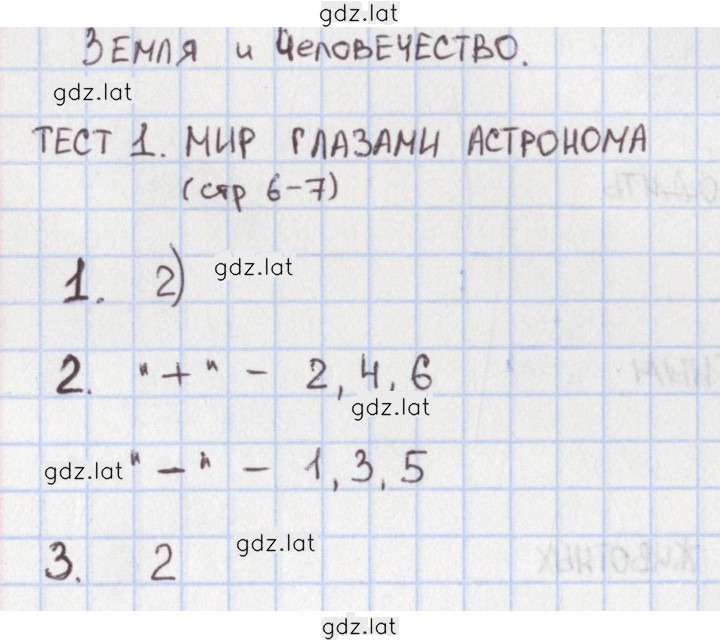 gdz.lat
ЗЕМЛЯ и ЧЕЛОВЕЧЕСТВО.
gdz.lat
ТЕСТ 1. МИР ГЛАЗАМИ АСТРОНОМА
(стр 6-7)
1. 2) gdz.lat
2. "+" - 2, 4, 6
gdz.lat
gdz.lat "-" - 1, 3, 5
3. 2 gdz.lat
gdz.lat